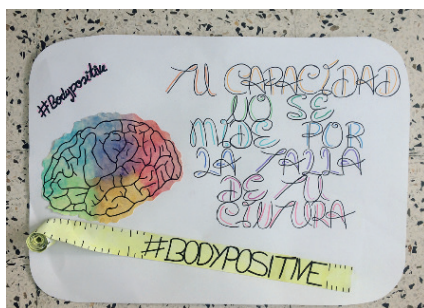 #Bodypositive
TU CAPACIDAD
NO SE
MIDE POR
LA TALLA
DE TU
CINTURA
#BODYPOSITIVE